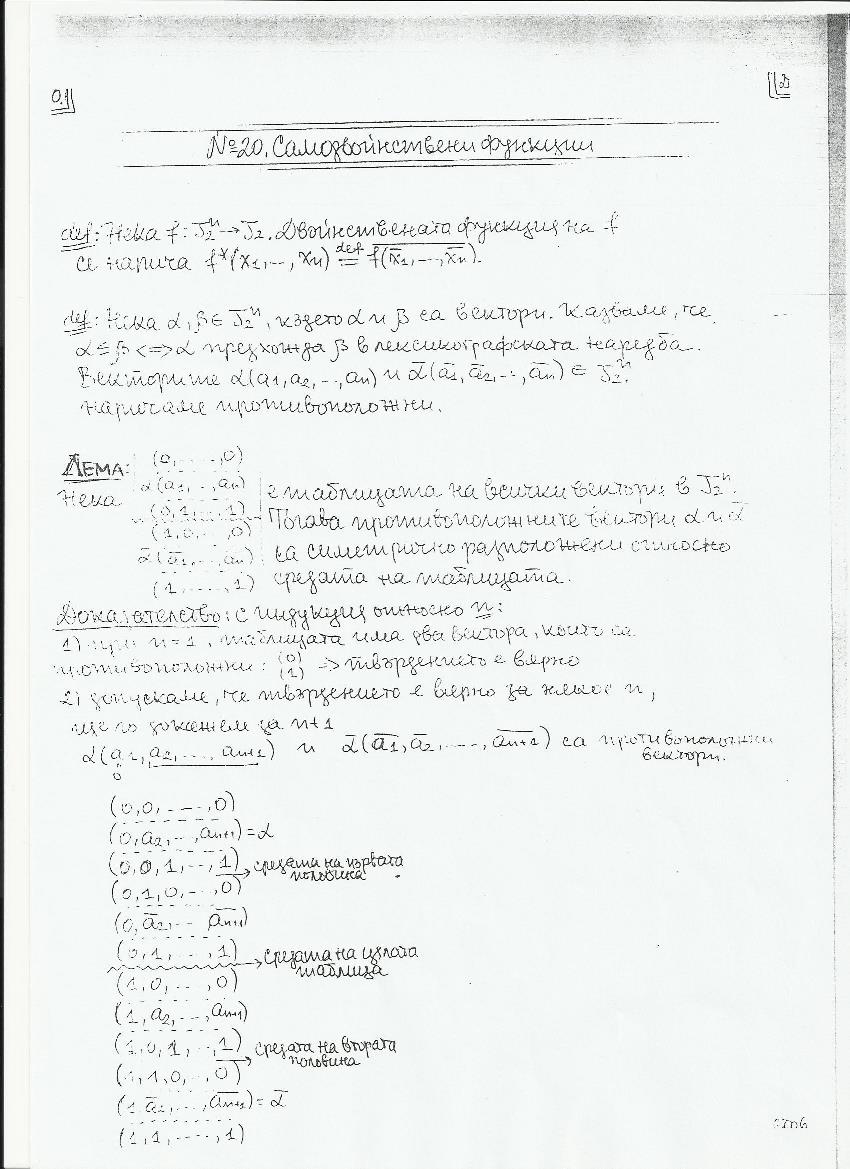 0.1
2
№20. Самодвойнствени функции
def: Нека f: J₂ⁿ→J₂. Двойнствената функция на f
се нарича f*(x₁,..,xₙ) def= f̅(̅x̅₁,..,x̅ₙ)̅.
def: Нека α, β ∈ J₂ⁿ, където α и β са вектори. Казваме, че
α ≤ β <=> α предхожда β в лексикографската наредба.
Векторите α(a₁,a₂,..,aₙ) и α̅(a̅₁,a̅₂,..,a̅ₙ) ∈ J₂ⁿ
наричаме противоположни.
Лема: (0,....,0)
Нека α(a₁,..,aₙ) е таблицата на всички вектори в J₂ⁿ.
(0,1,..,1) Тогава противоположните вектори α и α̅
(1,0,..,0)
α̅(a̅₁,..,a̅ₙ) са симетрично разположени относно
(1,....,1) средата на таблицата.
Доказателство: с индукция относно n:
1) при n=1, таблицата има два вектора, които са
противоположни: (0) (1) => твърдението е вярно
2) допускаме, че твърдението е вярно за някое n,
ще го докажем за n+1
α(a₁,a₂,...,aₙ₊₁) и α̅(a̅₁,a̅₂,...,a̅ₙ₊₁) са противоположни
вектори.
0
(0,0,...,0)
(0,a₂,..,aₙ₊₁)=α
(0,0,1,..,1) → средата на първата
половина
(0,1,0,..,0)
(0,a̅₂,..a̅ₙ₊₁)
(0,1,...,1) → средата на цялата
таблица
(1,0,...,0)
(1,a₂,..,aₙ₊₁)
(1,0,1,..,1) → средата на втората
половина
(1,1,0,..,0)
(1,a̅₂,...,a̅ₙ₊₁)=α̅
(1,1,....,1)